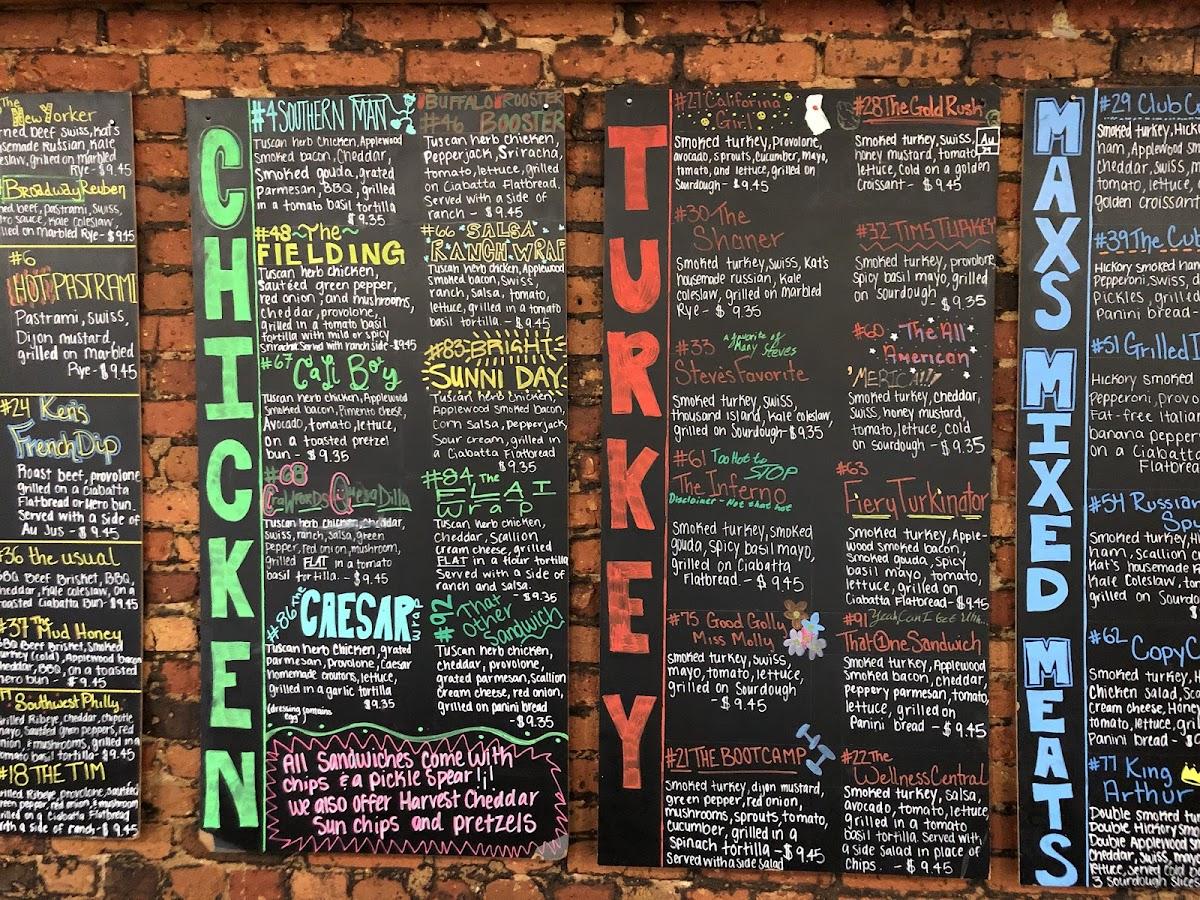 The
New Yorker
rned beef, swiss, Kat's
semade Russian, Kale
leslaw, grilled on marbled
Rye - $9.45
Broadway Reuben
ned beef, Pastrami, Swiss,
ro sauce, Kale coleslaw,
lled on Marbled Rye - $9.45
#6
HOT PASTRAMI
Pastrami, swiss,
Dijon mustard,
grilled on marbled
Rye - $9.45
#24 Ken's
French Dip
Roast beef, provolone
grilled on a Ciabatta
Flatbread or Hero bun.
Served with a side of
Au Jus - $9.45
#36 the usual
BBQ Beef Brisket, BBQ,
cheddar, Kale coleslaw, on a
toasted Ciabatta Bun - $9.45
#37 The Mud Honey
BBQ Beef Brisket, Smoked
turkey (cold), Applewood bacon
cheddar, BBQ, on a toasted
hero bun - $9.45
Southwest Philly
Grilled Ribeye, cheddar, chipotle
mayo, Sautéed green peppers, red
onion, & mushrooms, grilled in a
tomato basil tortilla - $9.45
#18 THE TIM
Grilled Ribeye, provolone, sautéed
green pepper, red onion, & mushroom
grilled on a Ciabatta Flatbread
with a side of ranch - $9.45
CHICKEN
#4 SOUTHERN MAN
Tuscan herb Chicken, Applewood
smoked bacon, Cheddar,
Smoked gouda, grated
parmesan, BBQ, grilled
in a tomato basil tortilla
$9.35
#48 ~The~
FIELDING
Tuscan herb chicken,
Sautéed green pepper,
red onion, and mushrooms,
cheddar, provolone,
grilled in a tomato basil
tortilla with mild or spicy
sriracha. Served with ranch side - $9.45
#67 Cali Boy
Tuscan herb chicken, Applewood
Smoked bacon, Pimento cheese,
Avocado, tomato, lettuce,
on a toasted pretzel
bun - $9.35
#68
Crawfords Quesadilla
Tuscan herb chicken, cheddar,
swiss, ranch, salsa, green
pepper, red onion, mushroom,
grilled FLAT in a tomato
basil tortilla. - $9.45
#86 the CAESAR wrap
Tuscan herb chicken, grated
parmesan, provolone, Caesar
homemade croutons, lettuce,
grilled in a garlic tortilla
(dressing contains egg) $9.35
BUFFALO ROOSTER
#46 BOOSTER
Tuscan herb chicken,
Pepperjack, Sriracha,
tomato, lettuce, grilled
on Ciabatta Flatbread.
Served with a side of
ranch - $9.45
#66 ~SALSA
RANCH WRAP
Tuscan herb chicken, Applewood
smoked bacon, swiss,
ranch, salsa, tomato,
lettuce, grilled in a tomato
basil tortilla - $9.45
#83 BRIGHT
SUNNI DAY
Tuscan herb chicken,
Applewood smoked bacon,
Corn Salsa, Pepperjack,
Sour cream, grilled in
a Ciabatta Flatbread
$9.35
#84 The
ELAI
Wrap
Tuscan herb chicken,
Cheddar, Scallion
cream cheese, grilled
FLAT in a flour tortilla
Served with a side of
ranch and salsa.
- $9.35
#92 That
Other
Sandwich
Tuscan herb chicken,
cheddar, provolone,
grated parmesan, scallion
cream cheese, red onion,
grilled on panini bread
- $9.35
All Sandwiches come with
chips & a pickle spear!¡!
we also offer Harvest Cheddar
Sun chips and pretzels
TURKEY
#27 California
Girl
Smoked turkey, provolone,
avocado, sprouts, cucumber, mayo,
tomato, and lettuce, grilled on
Sourdough - $9.45
#30 The
Shaner
Smoked turkey, swiss, Kat's
housemade russian, Kale
coleslaw, grilled on marbled
Rye - $9.35
#33 a favorite of
Many Steves
Steve's Favorite
Smoked turkey, swiss,
thousand island, Kale coleslaw,
grilled on Sourdough - $9.35
#61 Too Hot to
STOP
The Inferno
Disclaimer - Not that hot
Smoked turkey, smoked
gouda, spicy basil mayo,
grilled on Ciabatta
Flatbread. - $9.45
#75 Good Golly
Miss Molly
Smoked turkey, swiss,
mayo, tomato, lettuce,
grilled on Sourdough
- $9.45
#21 THE BOOTCAMP
Smoked turkey, dijon mustard,
green pepper, red onion,
mushrooms, sprouts, tomato,
cucumber, grilled in a
spinach tortilla - $9.45
served with a side salad
#28 The Gold Rush
Au
Smoked turkey, swiss,
honey mustard, tomato,
lettuce, Cold on a golden
croissant - $9.45
#32 TIMS TURKEY
Smoked turkey, provolone
spicy basil mayo, grilled
on Sourdough
- $9.35
#60 The All
American
'MERICA!!!
Smoked turkey, cheddar,
Swiss, honey mustard,
tomato, lettuce, cold
on sourdough - $9.35
#63
Fiery Turkinator
Smoked turkey, Apple-
wood smoked bacon,
Smoked gouda, spicy
basil mayo, tomato,
lettuce, grilled on
Ciabatta Flatbread - $9.45
#91
That 1 One Sandwich
Smoked turkey, Applewood
smoked bacon, cheddar,
peppery parmesan, tomato,
lettuce, grilled on
Panini bread - $9.45
#22 The
Wellness Central
Smoked turkey, salsa,
avocado, tomato, lettuce,
grilled in a tomato
basil tortilla. Served with
a side Salad in place of
Chips. - $9.45
MAXS MIXED MEATS
#29 Club C
Smoked turkey, Hick
ham, Applewood sm
cheddar, swiss, m
tomato, lettuce,
golden croissant
#39 The Cub
Hickory smoked ham
Pepperoni, swiss, d
Pickles, grilled
Panini bread -
#51 Grilled I
Hickory smoked
Pepperoni, provo
Fat-free Italian
banana pepper
on a Ciabatta
Flatbread
#54 Russian
Sp
Smoked turkey, Hi
ham, scallion c
Kat's housemade R
Kale Coleslaw, to
grilled on Sourd
- $
#62
CopyC
Smoked turkey, H
Chicken Salad, Sca
cream cheese, Hone
tomato, lettuce, gri
Panini bread - $9
#77 King
Arthur
Double smoked tu
Double Hickory smo
Double Applewood sm
cheddar, swiss, mayo
lettuce, served cold on
3 Sourdough Slices